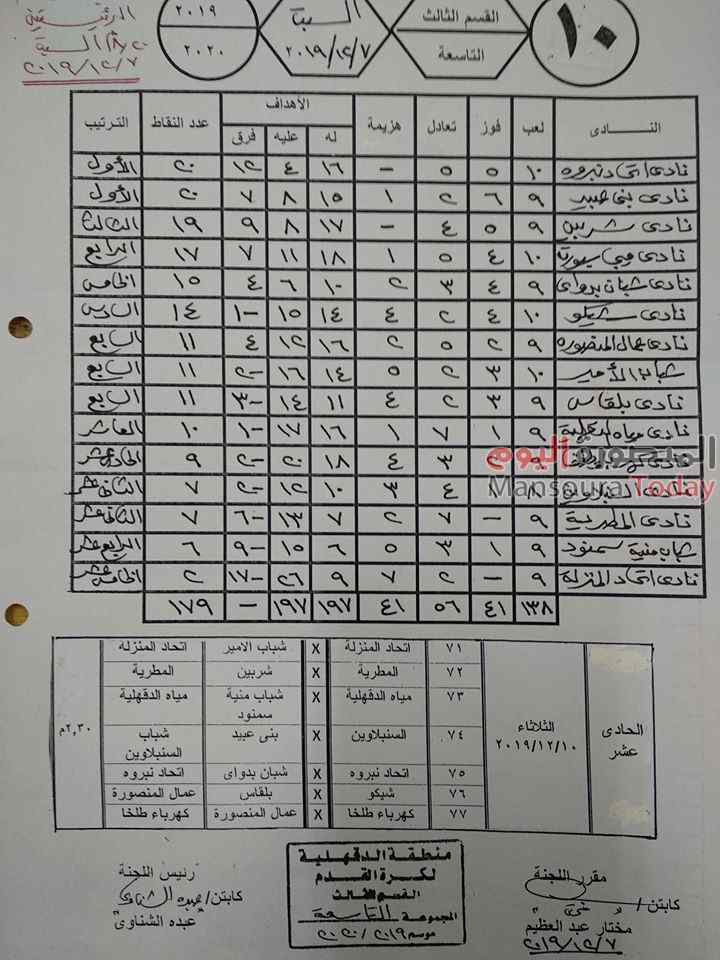 الرئيسية
٢٠١٩/١٢/٧
٢٠١٩
٢٠٢٠
السبت
٢٠١٩/١٢/٧
القسم الثالث
التاسعة
١٠
النـــادى لعب فوز تعادل هزيمة الأهداف عدد النقاط الترتيب
له عليه فرق
نادى اتحاد نبروه ١٠ ٥ ٥ - ١٦ ٤ ١٢ ٢٠ الأول
نادى بنى عبيد ٩ ٦ ٢ ١ ١٥ ٨ ٧ ٢٠ الأول
نادى شربين ٩ ٥ ٤ - ١٧ ٨ ٩ ١٩ الثالث
نادى ١٠ ٤ ٥ ١ ١٨ ١١ ٧ ١٧ الرابع
نادى شبان بدواى ٩ ٤ ٣ ٢ ١٠ ٦ ٤ ١٥ الخامس
نادى شيكو ١٠ ٤ ٢ ٤ ١٤ ١٥ -١ ١٤ السادس
نادى عمال المنصورة ٩ ٢ ٥ ٢ ١٦ ١٢ ٤ ١١ السابع
شباب الأمير ١٠ ٣ ٢ ٥ ١٤ ١٦ -٢ ١١ السابع
نادى بلقاس ٩ ٣ ٢ ٤ ١١ ١٤ -٣ ١١ السابع
نادى مياه الدقهلية ٩ ١ ٧ ١ ١٦ ١٧ -١ ١٠ العاشر
نادى ٣ ٤ ١٨ ٢٠ -٢ ٩ الحادى عشر
نادى السنبلاوين ٨ ١ ٤ ٣ ١٠ ١٢ -٢ ٧ الثانى عشر
نادى المطرية ٩ - ٧ ٢ ٧ ١٣ -٦ ٧ الثانى عشر
شباب منية سمنود ٩ ١ ٣ ٥ ٦ ١٥ -٩ ٦ الرابع عشر
نادى اتحاد المنزلة ٩ - ٢ ٧ ٩ ٢٦ -١٧ ٢ الخامس عشر
١٣٨ ٤١ ٥٦ ٤١ ١٩٧ ١٩٧ - ١٧٩
المنصورة اليوم
Mansoura Today
الحادى عشر
الثلاثاء
٢٠١٩/١٢/١٠
٧١ اتحاد المنزلة X شباب الامير اتحاد المنزله
٧٢ المطرية X شربين المطرية
٧٣ مياه الدقهلية X شباب منية سمنود مياه الدقهلية
٧٤ السنبلاوين X بنى عبيد شباب السنبلاوين
٧٥ اتحاد نبروه X شبان بدواى اتحاد نبروه
٧٦ شيكو X بلقاس عمال المنصورة
٧٧ كهرباء طلخا X عمال المنصورة كهرباء طلخا
٢,٣٠م
مقرر اللجنة
كابتن /
مختار عبد العظيم
٢٠١٩/١٢/٧
منطقة الدقهلية
لكرة القدم
القسم الثالث
المجموعة التاسعة
موسم ٢٠١٩ / ٢٠٢٠
رئيس اللجنة
كابتن/ عبده الشناوى
"عبده الشناوى"